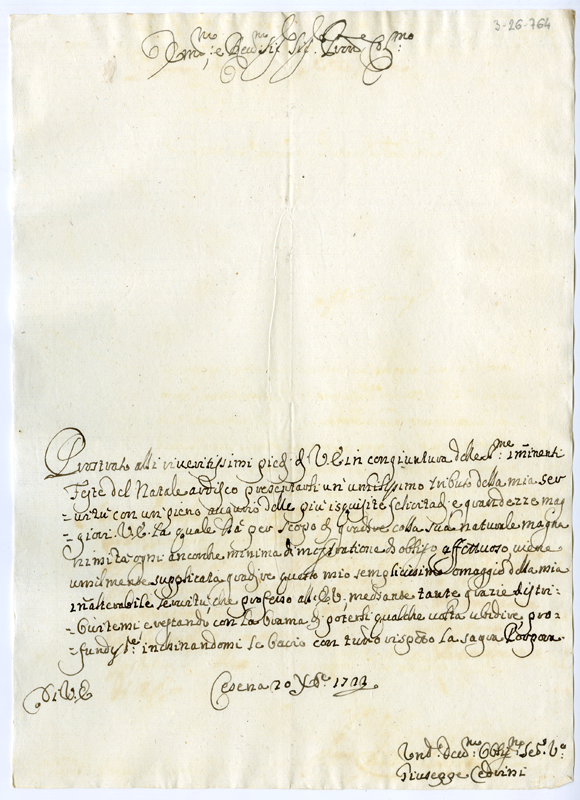 3-26-764
Em:mo e Rev:mo Sig: Sig: Prōne Col:mo
Prostrato alli riveritissimi piedi di V.E. in congiuntura delle S:me iminenti
Feste del Natale ardisco presentarli un' umilissimo tributo della mia ser
=vitù con un pieno augurio delle più isquisite felicitadi, e grandezze mag
giori. V.E. la quale hà per scopo di gradire colla sua naturale magna
nimità ogni ancorche minima dimostratione di obligo affettuoso, viene
umilmente supplicata gradire questo mio semplicissimo omaggio della mia
inalterabile servitù, che professo all' E.V. mediante tante grazie distri-
=buitemi e restando con la brama di poterli qualche volta ubidire pro=
=fund:te inchinandomi le bacio con tutto rispetto la sagra Porpora
Di V.E.
Cesena 20 Xbre
Um:
Giuseppe